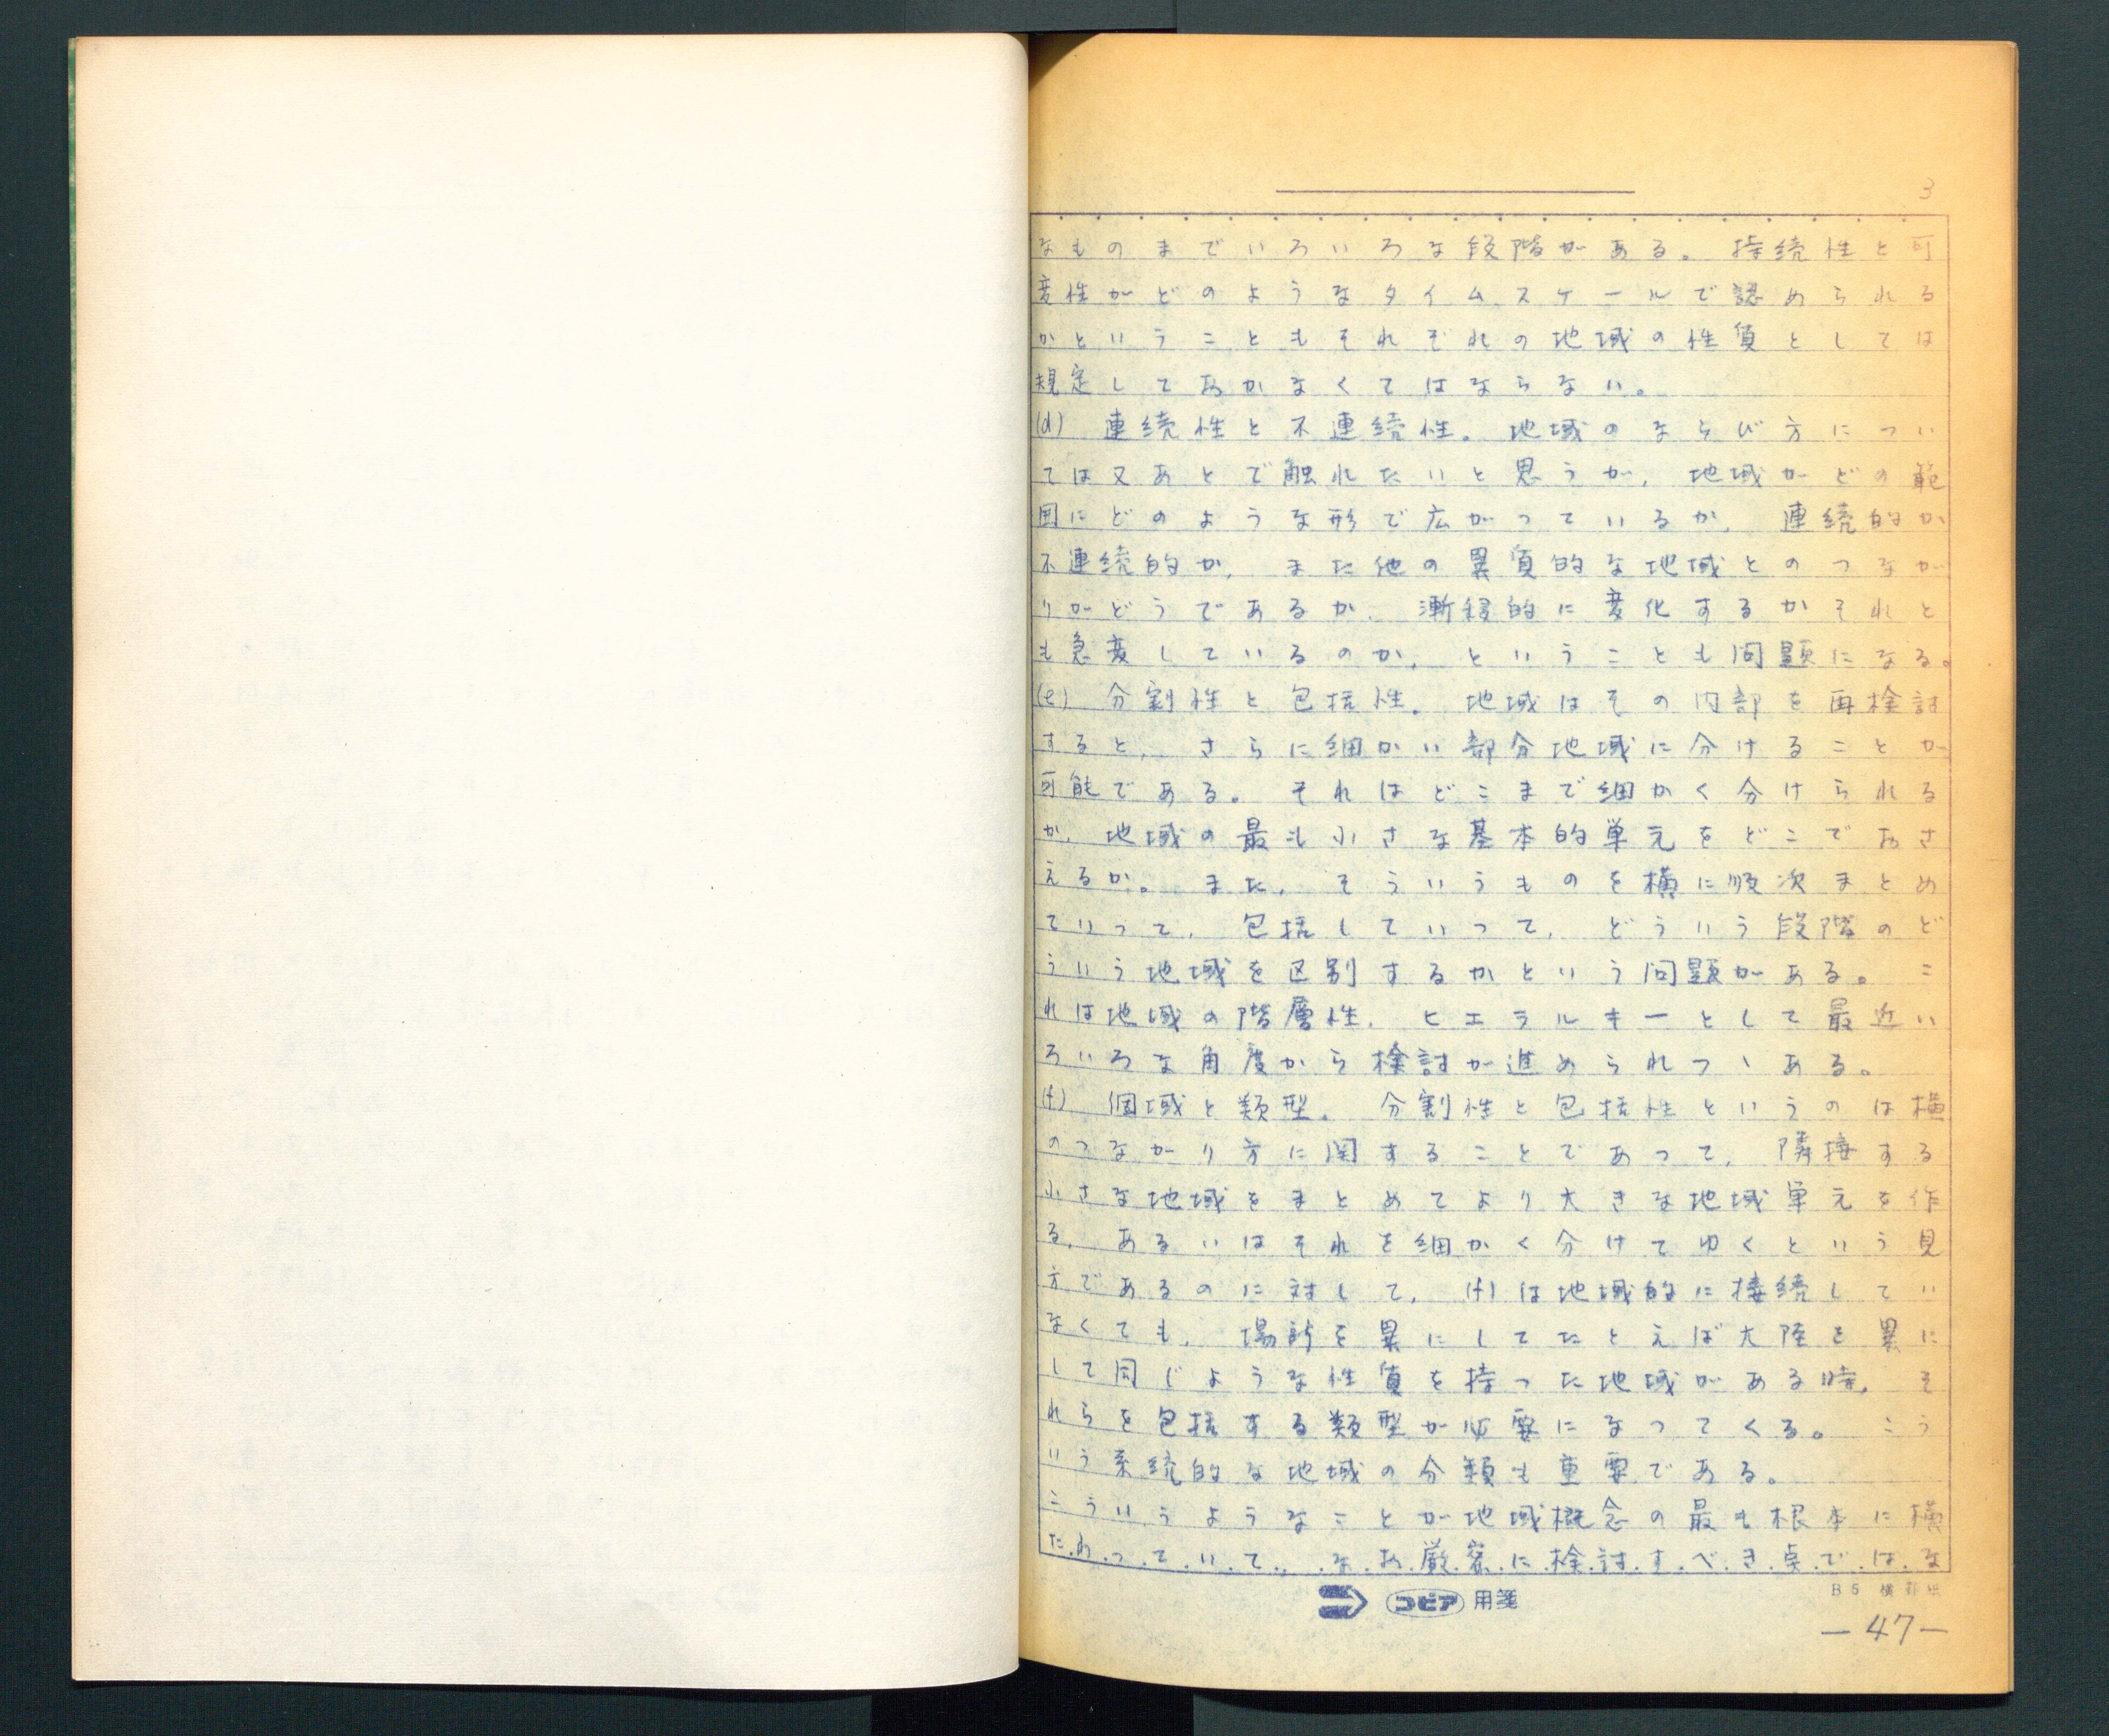 3
なものまでいろいろな段階がある。持続性と可
変性がどのようなタイムスケールで認められる
かということもそれぞれの地域の性質としては
規定しておかなくてはならない。
(d) 連続性と不連続性。地域のならび方につい
ては又あとで触れたいと思うが，地域がどの範
囲にどのような形で広がっているか，連続的か
不連続的か，また他の異質的な地域とのつなが
りがどうであるか，漸移的に変化するかそれと
も急変しているのか，ということも問題になる。
(e) 分割性と包括性。地域はその内部を再検討
すると，さらに細かい部分地域に分けることが
可能である。それはどこまで細かく分けられる
か，地域の最も小さな基本的単元をどこでおさ
えるか。また，そういうものを横に順次まとめ
ていって，包括していって，どういう段階のど
ういう地域を区別するかという問題がある。こ
れは地域の階層性，ヒエラルキーとして最近い
ろいろな角度から検討が進められつゝある。
(f) 個域と類型。分割性と包括性というのは横
のつながり方に関することであって，隣接する
小さな地域をまとめてより大きな地域単元を作
る，あるいはそれを細かく分けてゆくという見
方であるのに対して，(f)は地域的に接続してい
なくても，場所を異にしてたとえば大陸を異に
して同じような性質を持った地域がある時，そ
れらを包括する類型が必要になってくる。こう
いう系統的な地域の分類も重要である。
こういうようなことが地域概念の最も根本に横
たわっていて，なお厳密に検討すべき点ではな
コピア 用箋
B5 横罫
—47—